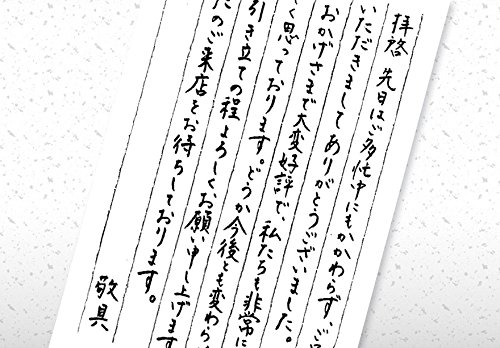 拝啓 先日はご多忙中にもかかわらず、ご
いただきましてありがとうございました。
おかげさまで大変好評で、私たちも非常に
く思っております。どうか今後とも変わら
引き立ての程よろしくお願い申し上げます
たのご来店をお待ちしております。
敬具